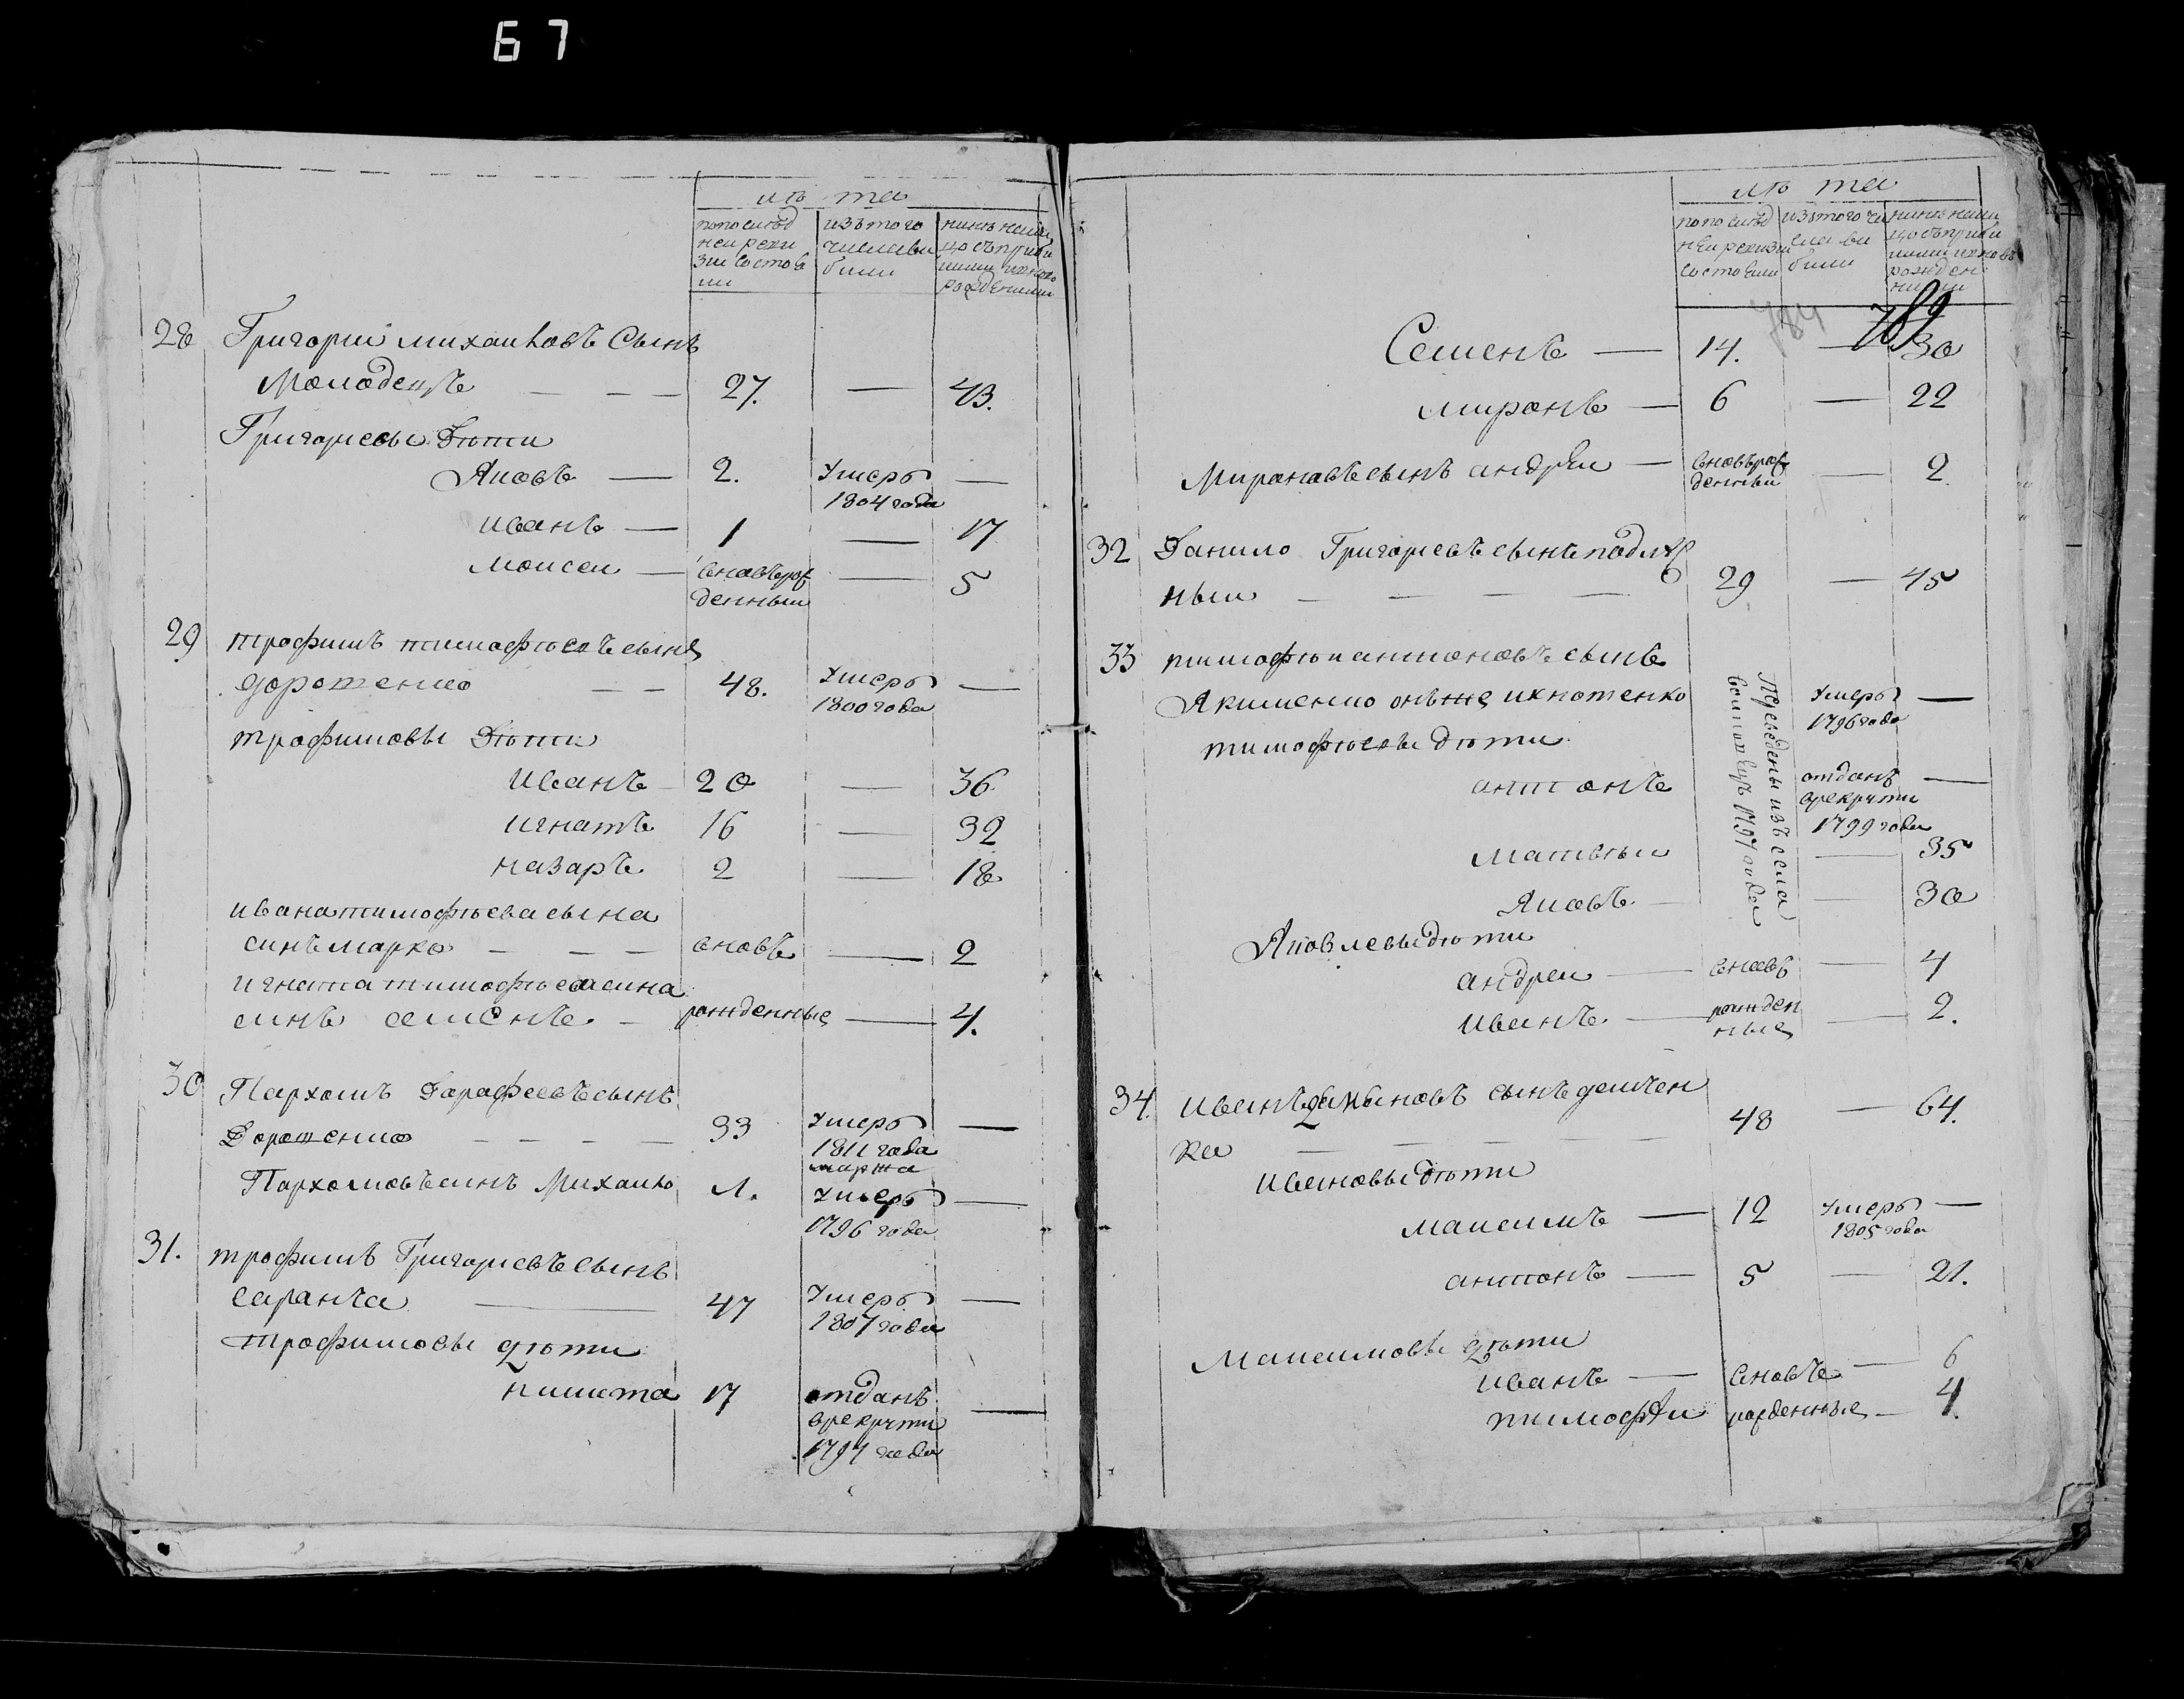 67
лѣта
по послѣд
ней реви
зии состоя
ли
изъ того
числа вы
были
нинѣ нали
цо съ прибы
лими и новоро
рожденими
28 Григории михаиловъ Сынъ
Молодецъ — — — 27. — 43.
Григориевы Дѣти
Яковъ — 2. Умеръ —
1804 года
иванъ — 1 — 17
Моисеи — вновърож — 5
денныи
29 трофимъ тимофѣевъ сынъ
дорошенко — — 48. Умеръ —
1800 года
трофимовы Дѣти
Иванъ — 20 — 36
игнатъ 16 — 32
назаръ 2 — 18
ивана тимофѣева сына
синъ марко — — — вновъ — 2
игната тимофѣева сина
синъ семенъ — рожденные — 4.
30 Пархомъ Дарафеевъ сынъ
Дорошенко — — — — 33 Умеръ —
1811 года
марта
Пархомовъ синъ Михаило 1. Умеръ —
1796 года
31. трофимъ Григориевъ Сынъ
саранча — 47 Умеръ —
1807 года
трофимовы дѣти
никита 17 отданъ
врекрути —
1797 года
лѣта
по послѣд
ней ревизии
состояли
изъ того чи
сла вы
были
нинѣ нали
цо съ прибы
лими и новъ
рожден
ними
784
789
Семенъ — 14. — 30
миронъ — 6 — 22
Мироновъ сынъ андреи — вновърож — 2
денныи
32 Данило Григориевъ сынъ подлѣс
ныи — — — — 29 — 45
33 тимофѣи антоновъ сынъ
Якименко онъ же ихнотенко Умеръ —
1796 года
тимофѣевы дѣти
антонъ отданъ —
врекрути
1799 года
Матвѣи — 35
Яковъ — — 30
Переведены изъ села
1797 года
Яковлевы дѣти
андреи — вновъ — 4
Иванъ — рожден — 2.
ные
34. Иванъ демяновъ сынъ демчен
ка — — — 48 — 64.
ивановы дѣти
максимъ — 12 Умеръ —
1805 года
антонъ — 5 — 21.
Максимовы дѣти
иванъ — вновъ — 6
тимофѣи рожденные — 4.